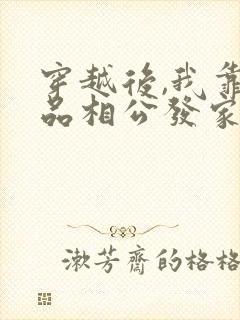 穿越後,我靠
品相公發家
漱芳齋的格格